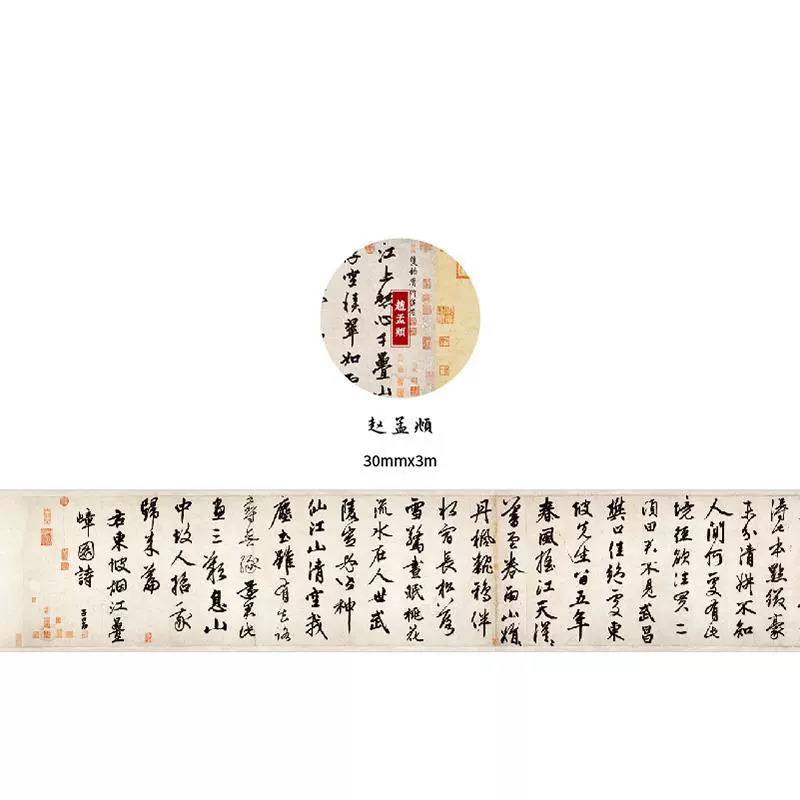 江上愁心千疊山
浮空積翠如雲
趙孟頫
赵孟頫
30mmx3m
得此本點綴豪
末分清妍不知
人間何處有此
境徑欲往買二
頃田君不見武昌
樊口佳絕處東
坡先生留五年
春風搖江天漠漠
暮雲卷雨山娟娟
丹楓翻鴉伴
水宿長松落
雪驚晝眠桃花
流水在人世武
陵豈必皆神
仙江山清空我
塵土雖有去路
尋無緣還君此
畫三歎息山
中故人招我
歸来篇
右東坡烟江疊
嶂圖詩
子昂